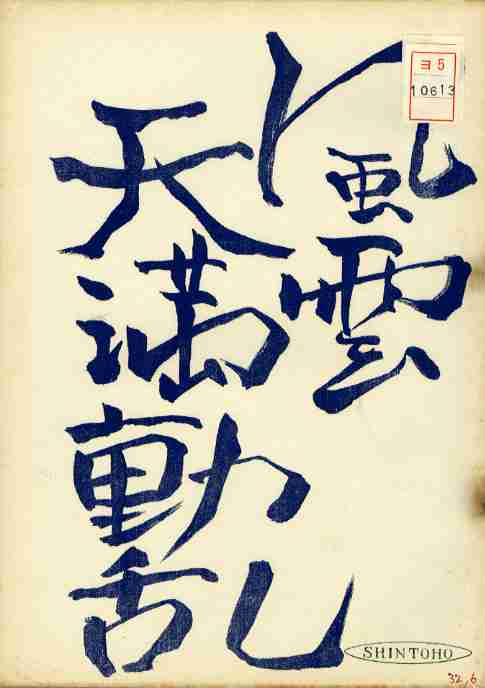 風雲
天満動乱
ヨ5
10613
SHINTOHO
32.6